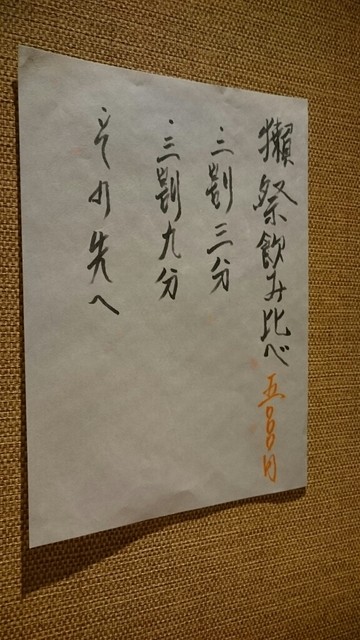 獺祭飲み比べ 五〇〇円
・三割三分
・三割九分
・その先へ